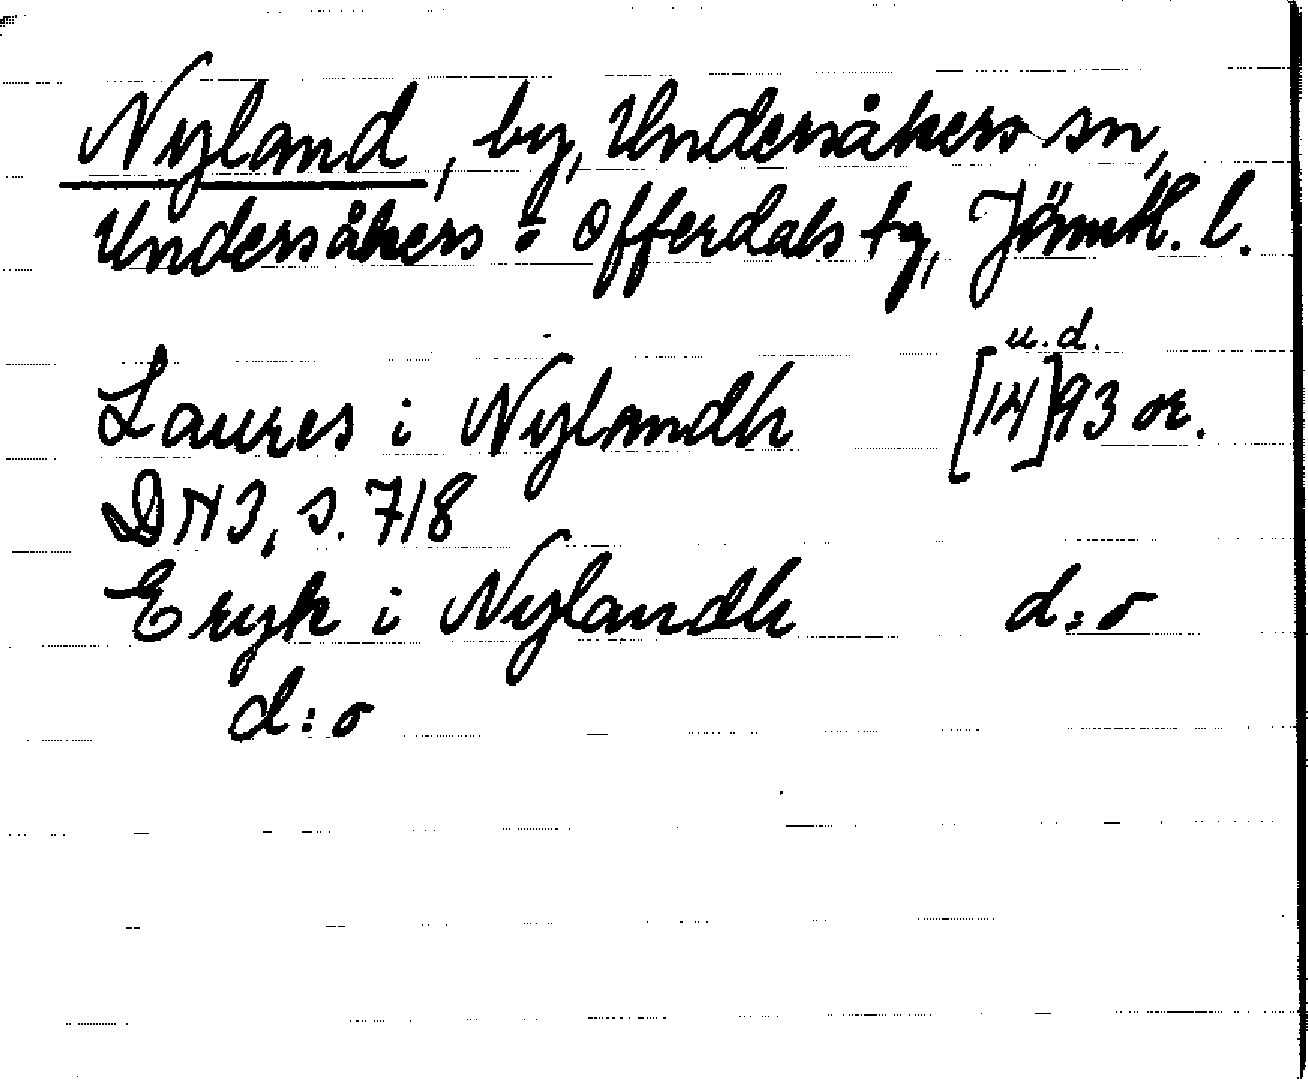 Nyland, by, Undersåkers sn,
Undersåkers o Offerdals tg, Jämtl. l.
u.d.
Laures i Nylandh [14]93 or.
DN3, s. 718
Eryk i Nylandh d:o
d:o